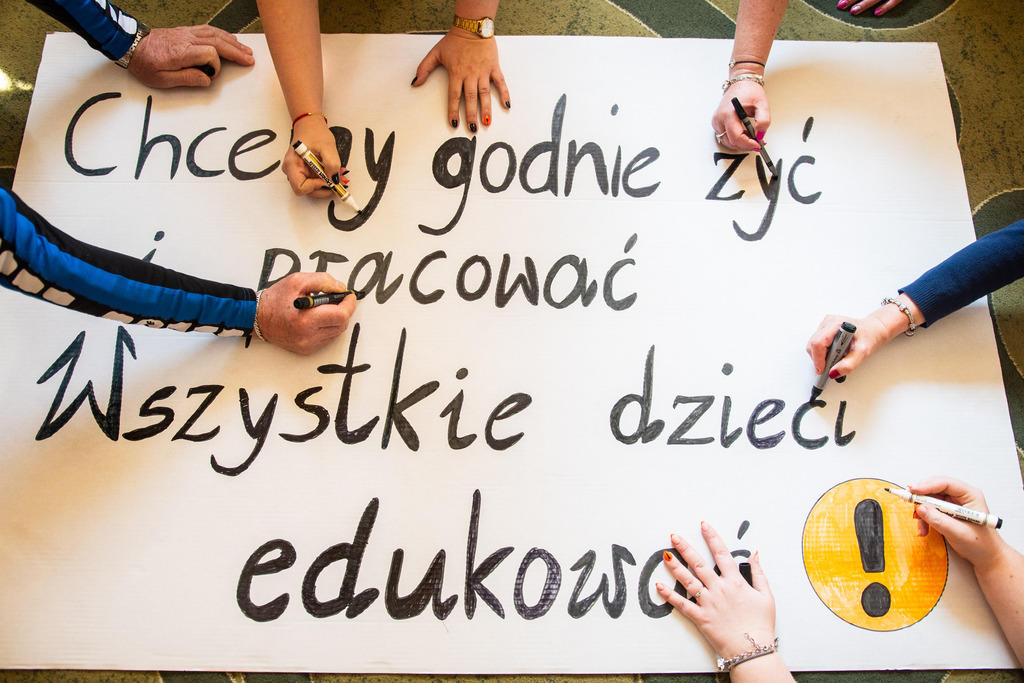 Chcemy godnie żyć
i pracować
Wszystkie dzieci
edukować